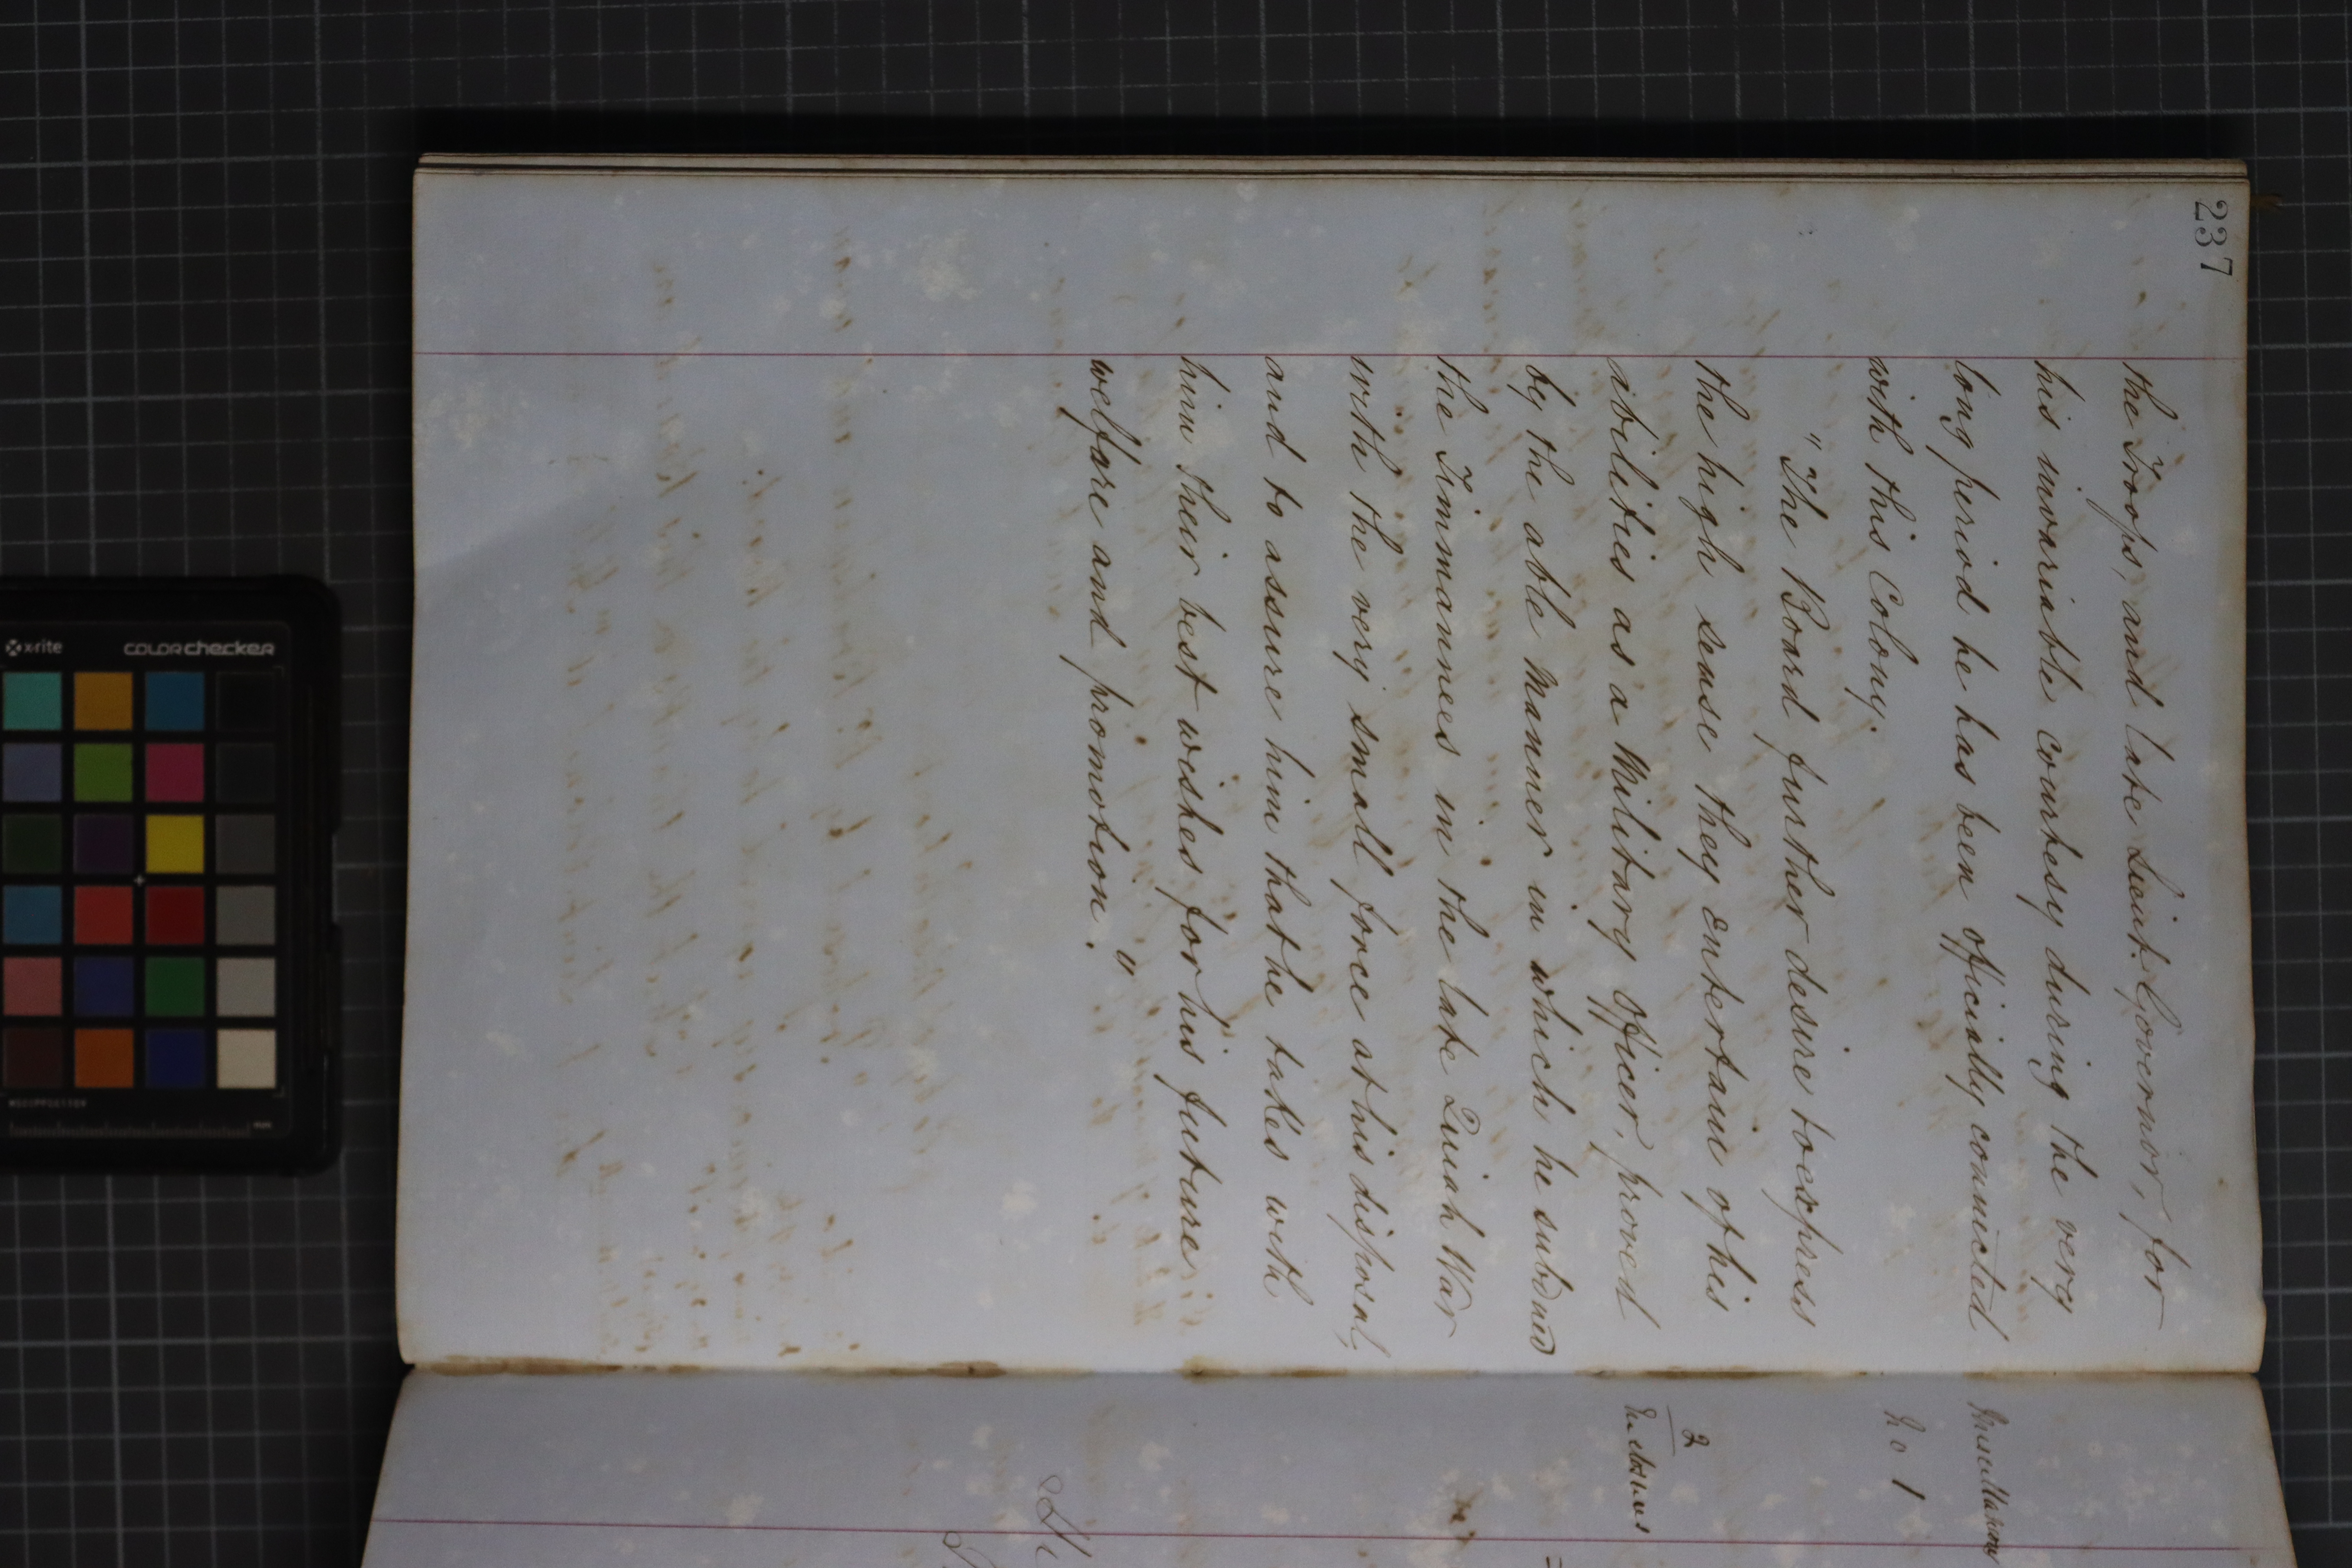 237
the Troops, and late Lieut. Governor, for
his invariable courtesy during the very
long period he has been officially connected
with this Colony.
"The Board further desire to express
the high sense they entertain of his
abilities as a Military Officer, proved
by the able manner in which he subdued
the Timmanees in the late Quiah War
with the very small force at his disposal,
and to assure him that he takes with
him their best wishes for his future
welfare and promotion."
Miscellaneous
No 1
2
Enclosures
x-rite
colorchecker